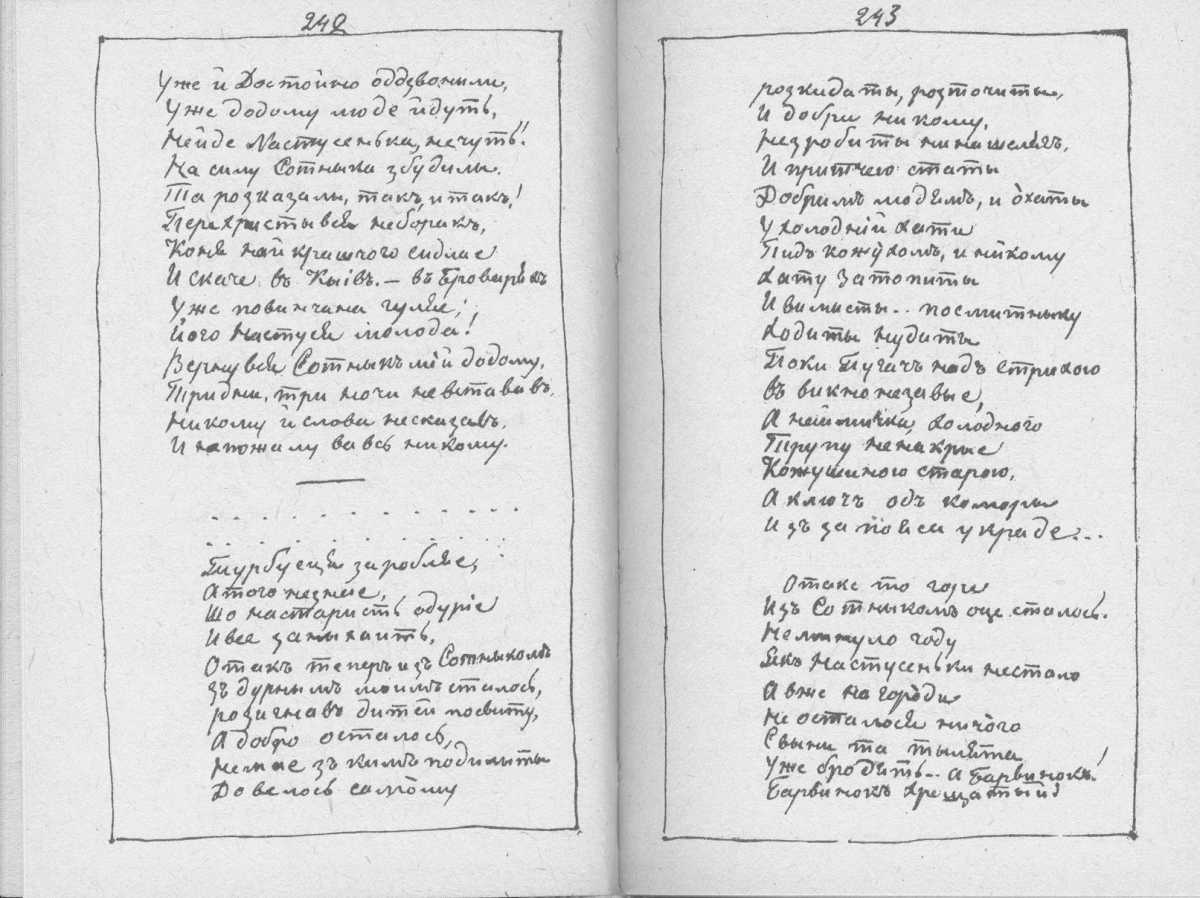 242
Уже й Достойно оддзвонили,
Уже додому люде йдуть,
Нейде Настусенька, нечуть!
На силу Сотныка збудилы.
Та розказалы, такъ, итакъ!
Перехристывся неборакъ,
Коня найкращчого сидлае
И скаче въ Кыівъ. — въ Броваряхъ
Уже повинчана гуляе;
Його Настуся молода!
Вернувся Сотныкъ мій додому,
Три дни, три ночи невстававъ,
Никому й слова несказавъ,
И непожалувавсь никому.
Турбуеця заробляе,
Атого незнае,
Шо настаристь одуріе
Ивсе занихаить,
Отакъ теперъ изъ Сотныкомъ
Зъ дурнымъ моимъ сталось,
розигнавъ дитей посвиту,
А добро осталось,
Немае зъ кимъ подилыты
Довелось самому
243
розкидаты, розточиты,
И добри никому,
Незробиты ни на шеляхъ,
И притчею статы
Добримъ людямъ, и охаты
У холодній хати
Пидъ кожухомъ, и нікому
хату Затопиты
И вимисты.. посмитныку
ходиты нудиты
Поки Пугачъ надъ стрихою
въ викно незавые,
А наймичка холодного
Трупу ненакрые
Кожушиною старою,
А ключъ одъ коморы
Изъ за пояса украде...
Отаке то горе
Изъ Сотныкомъ оце сталось.
Неминуло году
Якъ Настусеньки нестало
А вже на городи
Не осталося ничого
Свыни та тылята
Уже бродять.. а Барвинокъ!
Барвинокъ хрещатый!